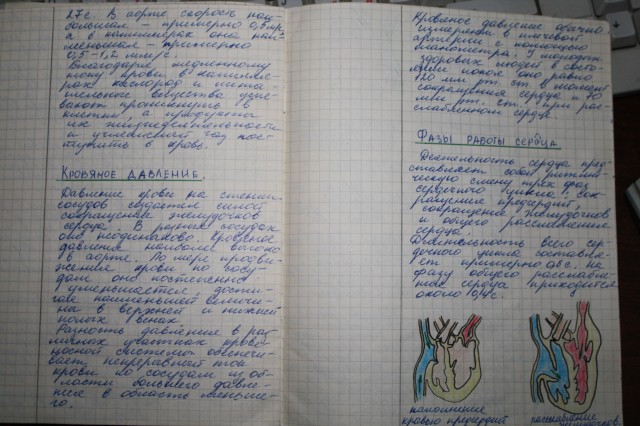 27с. В аорте скорость наи-
большая – примерно 0,5 м/с,
а в капиллярах она наи-
меньшая – примерно
0,5-1,2 мм/с.
Благодаря медленному
току крови в капилля-
рах кислород и пита-
тельное вещества успе-
вают проникнуть в
клетки, а продукты
их жизнедеятельности
и углекислый газ пос-
тупить в кровь.
КРОВЯНОЕ ДАВЛЕНИЕ.
Давление крови на стенки
сосудов создается силой
сокращения желудочков
сердца. В разных сосудах
оно неодинаково. Кровяное
давление наиболее высоко
в аорте. По мере продви-
жения крови по сосу-
дам оно постепенно
уменьшается, дости-
гая наименьшей величи-
ны в верхней и нижней
полых венах.
Разность давления в раз-
личных участках крове-
носной системы обеспечи-
вает непрерывный ток
крови по сосудам из об-
ласти большего давле-
ния в область меньше-
го.
Кровяное давление обычно
измеряют в плечевой
артерии с помощью
тонометра. У молодых
здоровых людей в состо-
янии покоя оно равно
120 мм рт. ст. в момент
сокращения сердца и 70
мм рт. ст. при рас-
слабленном сердце.
ФАЗЫ РАБОТЫ СЕРДЦА
Деятельность сердца пред-
ставляет собой ритми-
ческую смену трех фаз
сердечного цикла: сок-
ращения предсердий,
сокращения желудочков
и общего расслабления
сердца.
Длительность всего сер-
дечного цикла составля-
ет примерно 0,8с. На
фазу общего расслабле-
ния сердца приходится
около 0,4с.
наполнение
кровью предсердий
расслабление
желудочков